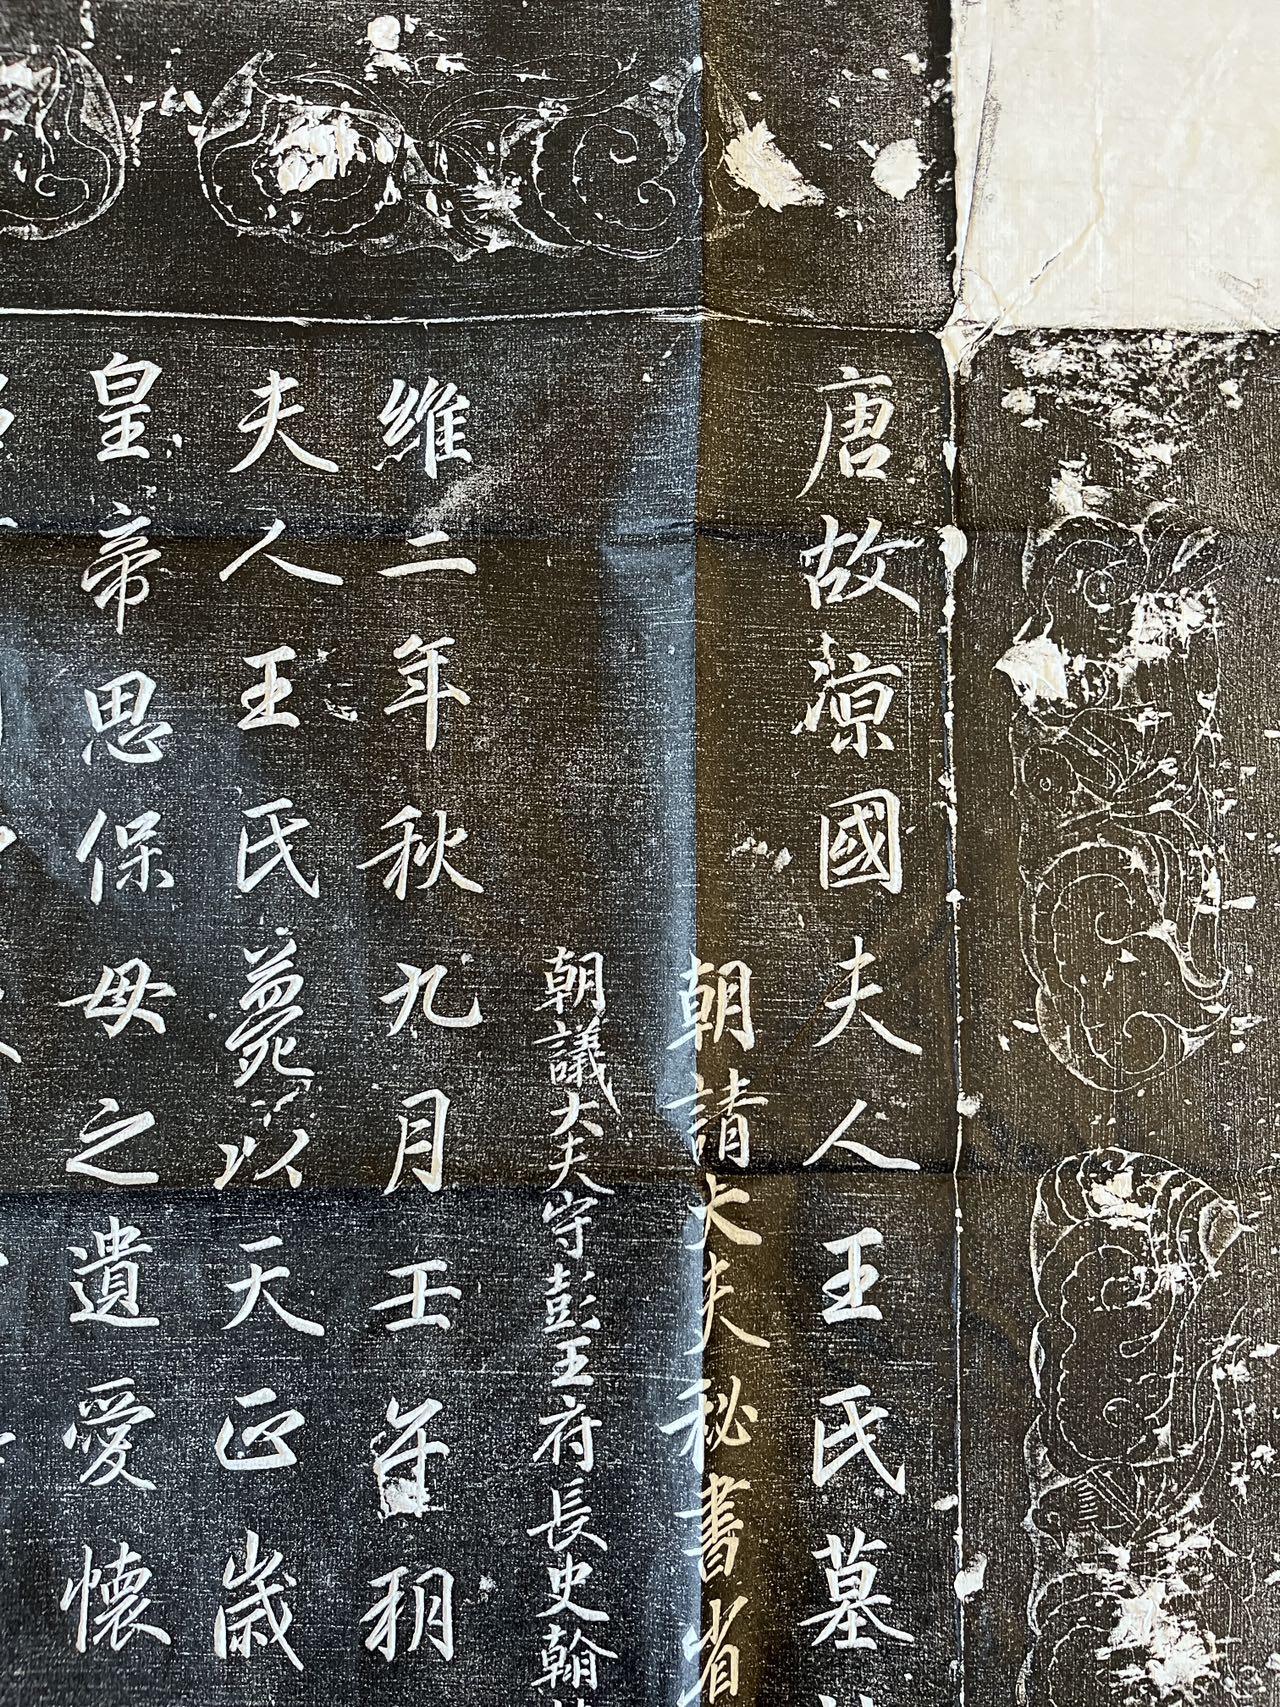 唐故涼國夫人王氏墓
朝請大夫秘書省
朝議大夫守彭王府長史翰
維二年秋九月壬午朔
夫人王氏薨以天正歲
皇帝思保母之遺愛懷